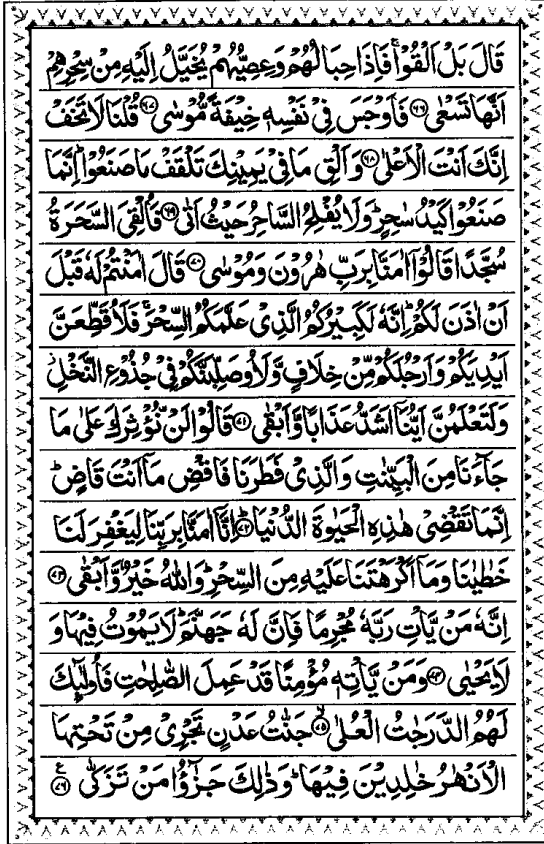 قَالَ بَلْ اَلْقُوْا ۚ فَاِذَا حِبَالُهُمْ وَعِصِيُّهُمْ يُخَيَّلُ اِلَيْهِ مِنْ سِحْرِهِمْ
اَنَّهَا تَسْعٰى ۶۶ فَاَوْجَسَ فِيْ نَفْسِهٖ خِيْفَةً مُّوْسٰى ۶۷ قُلْنَا لَا تَخَفْ
اِنَّكَ اَنْتَ الْاَعْلٰى ۶۸ وَاَلْقِ مَا فِيْ يَمِيْنِكَ تَلْقَفْ مَا صَنَعُوْا ؕ اِنَّمَا
صَنَعُوْا كَيْدُ سٰحِرٍ ؕ وَلَا يُفْلِحُ السَّاحِرُ حَيْثُ اَتٰى ۶۹ فَاُلْقِيَ السَّحَرَةُ
سُجَّدًا قَالُوْٓا اٰمَنَّا بِرَبِّ هٰرُوْنَ وَمُوْسٰى ۷۰ قَالَ اٰمَنْتُمْ لَهٗ قَبْلَ
اَنْ اٰذَنَ لَكُمْ ؕ اِنَّهٗ لَكَبِيْرُكُمُ الَّذِيْ عَلَّمَكُمُ السِّحْرَ ۚ فَلَاُقَطِّعَنَّ
اَيْدِيَكُمْ وَاَرْجُلَكُمْ مِّنْ خِلَافٍ وَّلَاُوصَلِّبَنَّكُمْ فِيْ جُذُوْعِ النَّخْلِ ؗ
وَلَتَعْلَمُنَّ اَيُّنَآ اَشَدُّ عَذَابًا وَّاَبْقٰى ۷۱ قَالُوْا لَنْ نُّؤْثِرَكَ عَلٰى مَا
جَآءَنَا مِنَ الْبَيِّنٰتِ وَالَّذِيْ فَطَرَنَا فَاقْضِ مَآ اَنْتَ قَاضٍ ؕ
اِنَّمَا تَقْضِيْ هٰذِهِ الْحَيٰوةَ الدُّنْيَا ؕ ۷۲ اِنَّآ اٰمَنَّا بِرَبِّنَا لِيَغْفِرَ لَنَا
خَطٰيٰنَا وَمَآ اَكْرَهْتَنَا عَلَيْهِ مِنَ السِّحْرِ ؕ وَاللّٰهُ خَيْرٌ وَّاَبْقٰى ۷۳
اِنَّهٗ مَنْ يَّاْتِ رَبَّهٗ مُجْرِمًا فَاِنَّ لَهٗ جَهَنَّمَ ؕ لَا يَمُوْتُ فِيْهَا وَ
لَا يَحْيٰى ۷۴ وَمَنْ يَّاْتِهٖ مُؤْمِنًا قَدْ عَمِلَ الصّٰلِحٰتِ فَاُولٰٓئِكَ
لَهُمُ الدَّرَجٰتُ الْعُلٰى ۙ ۷۵ جَنّٰتُ عَدْنٍ تَجْرِيْ مِنْ تَحْتِهَا
الْاَنْهٰرُ خٰلِدِيْنَ فِيْهَا ؕ وَذٰلِكَ جَزٰٓؤُا مَنْ تَزَكّٰى ۷۶ ع